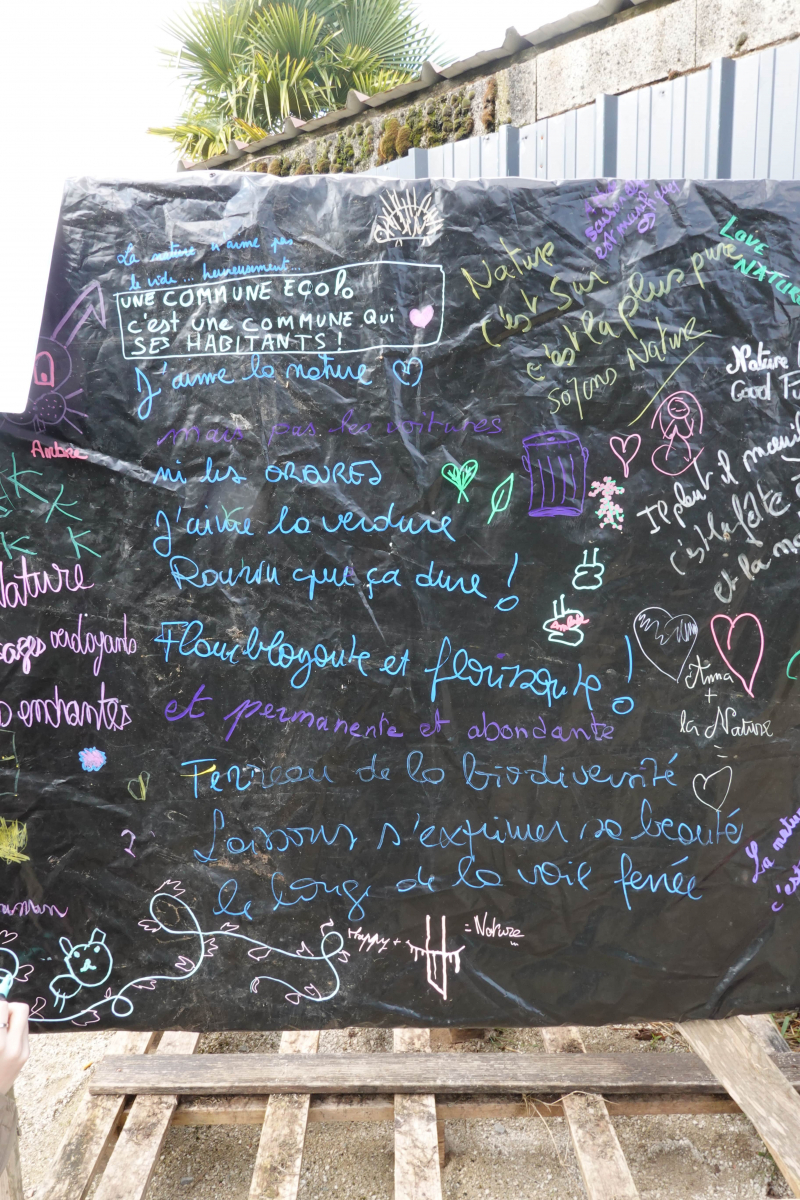 La nature n'aime pas
le vide... heureusement...
UNE COMMUNE ECOLO
c'est UNE COMMUNE QUI
SES HABITANTS !
J'aime la nature
mais pas les voitures
ni les ORDURES
J'aime la verdure
Pourvu que ça dure !
Flamboyante et florissante !
et permanente et abondante
Terreau de la biodiversité
Laissons s'exprimer sa beauté
le long de la voie ferrée
Nature
c'est Sur
c'est la plus pure
soyons Nature
LOVE
NATURE
Nature
Good
Il pleut il mouille
c'est la fête
et la
Ambre
Nature
verdoyants
enchantés
Anna
+
la Nature
=
La nature
c'est
maman
Happy + = Nature